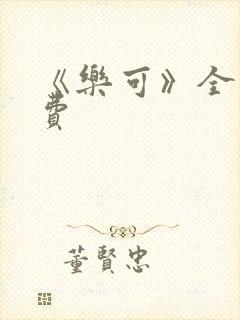 《樂可》全
費
董賢忠